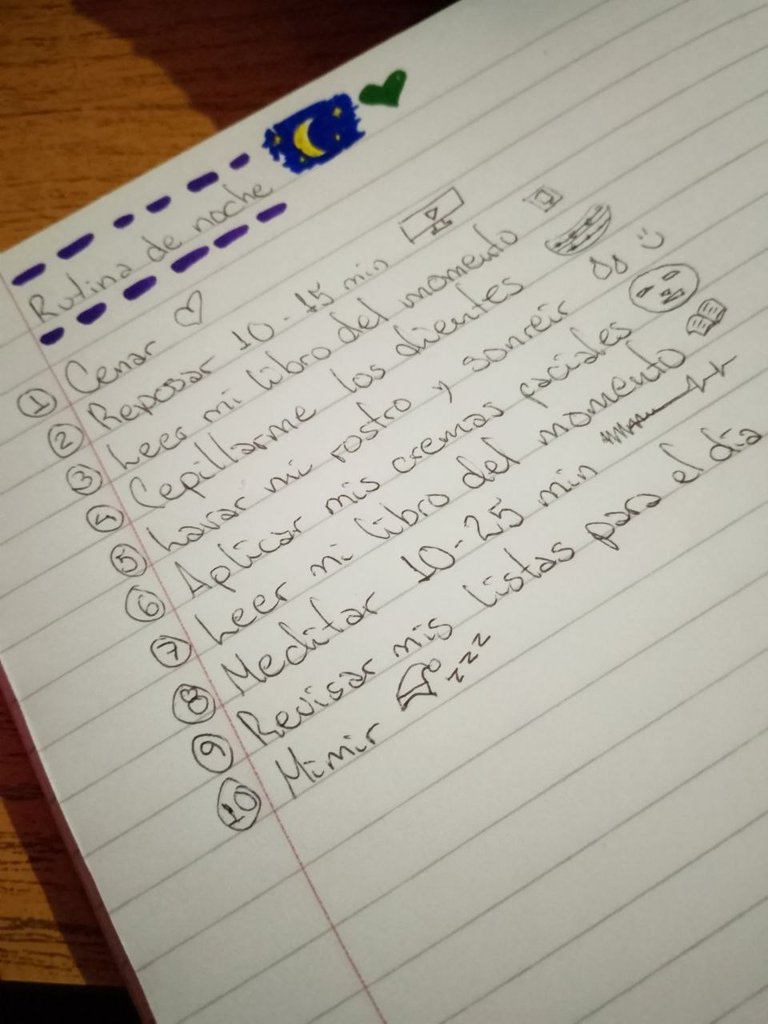 Rutina de noche
① Cenar
② Reposar 10-15 min
③ Leer mi libro del momento
④ Cepillarme los dientes
⑤ Lavar mi rostro y sonreir :)
⑥ Aplicar mis cremas faciales
⑦ Leer mi libro del momento
⑧ Meditar 10-25 min
⑨ Revisar mis listas para el día
⑩ Mimir zzz